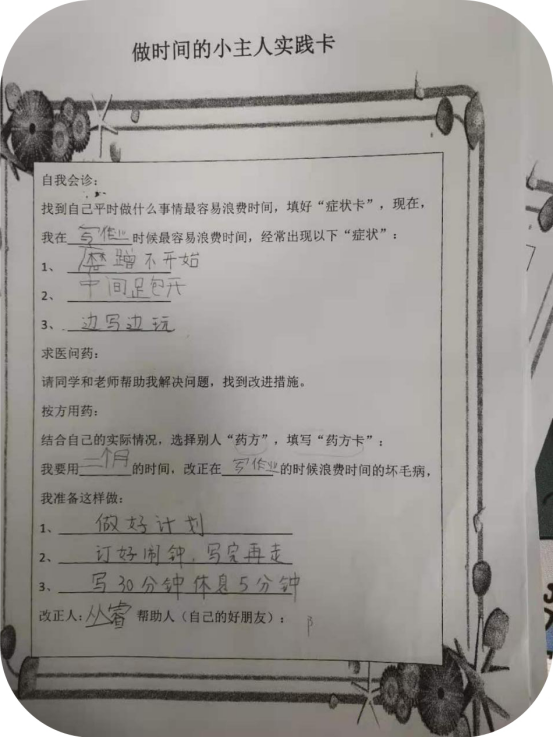 做时间的小主人实践卡
自我会诊：
找到自己平时做什么事情最容易浪费时间，填好“症状卡”，现在，
我在 写作业 时候最容易浪费时间，经常出现以下“症状”：
1、 磨蹭不开始
2、 中间
3、 边写边玩
求医问药：
请同学和老师帮助我解决问题，找到改进措施。
按方用药：
结合自己的实际情况，选择别人“药方”，填写“药方卡”；
我要用 个月 的时间，改正在 写作业 的时候浪费时间的坏毛病，
我准备这样做：
1、 做好计划
2、 订好闹钟，写完再走
3、 写30分钟休息5分钟
改正人：丛睿 帮助人（自己的好朋友）：